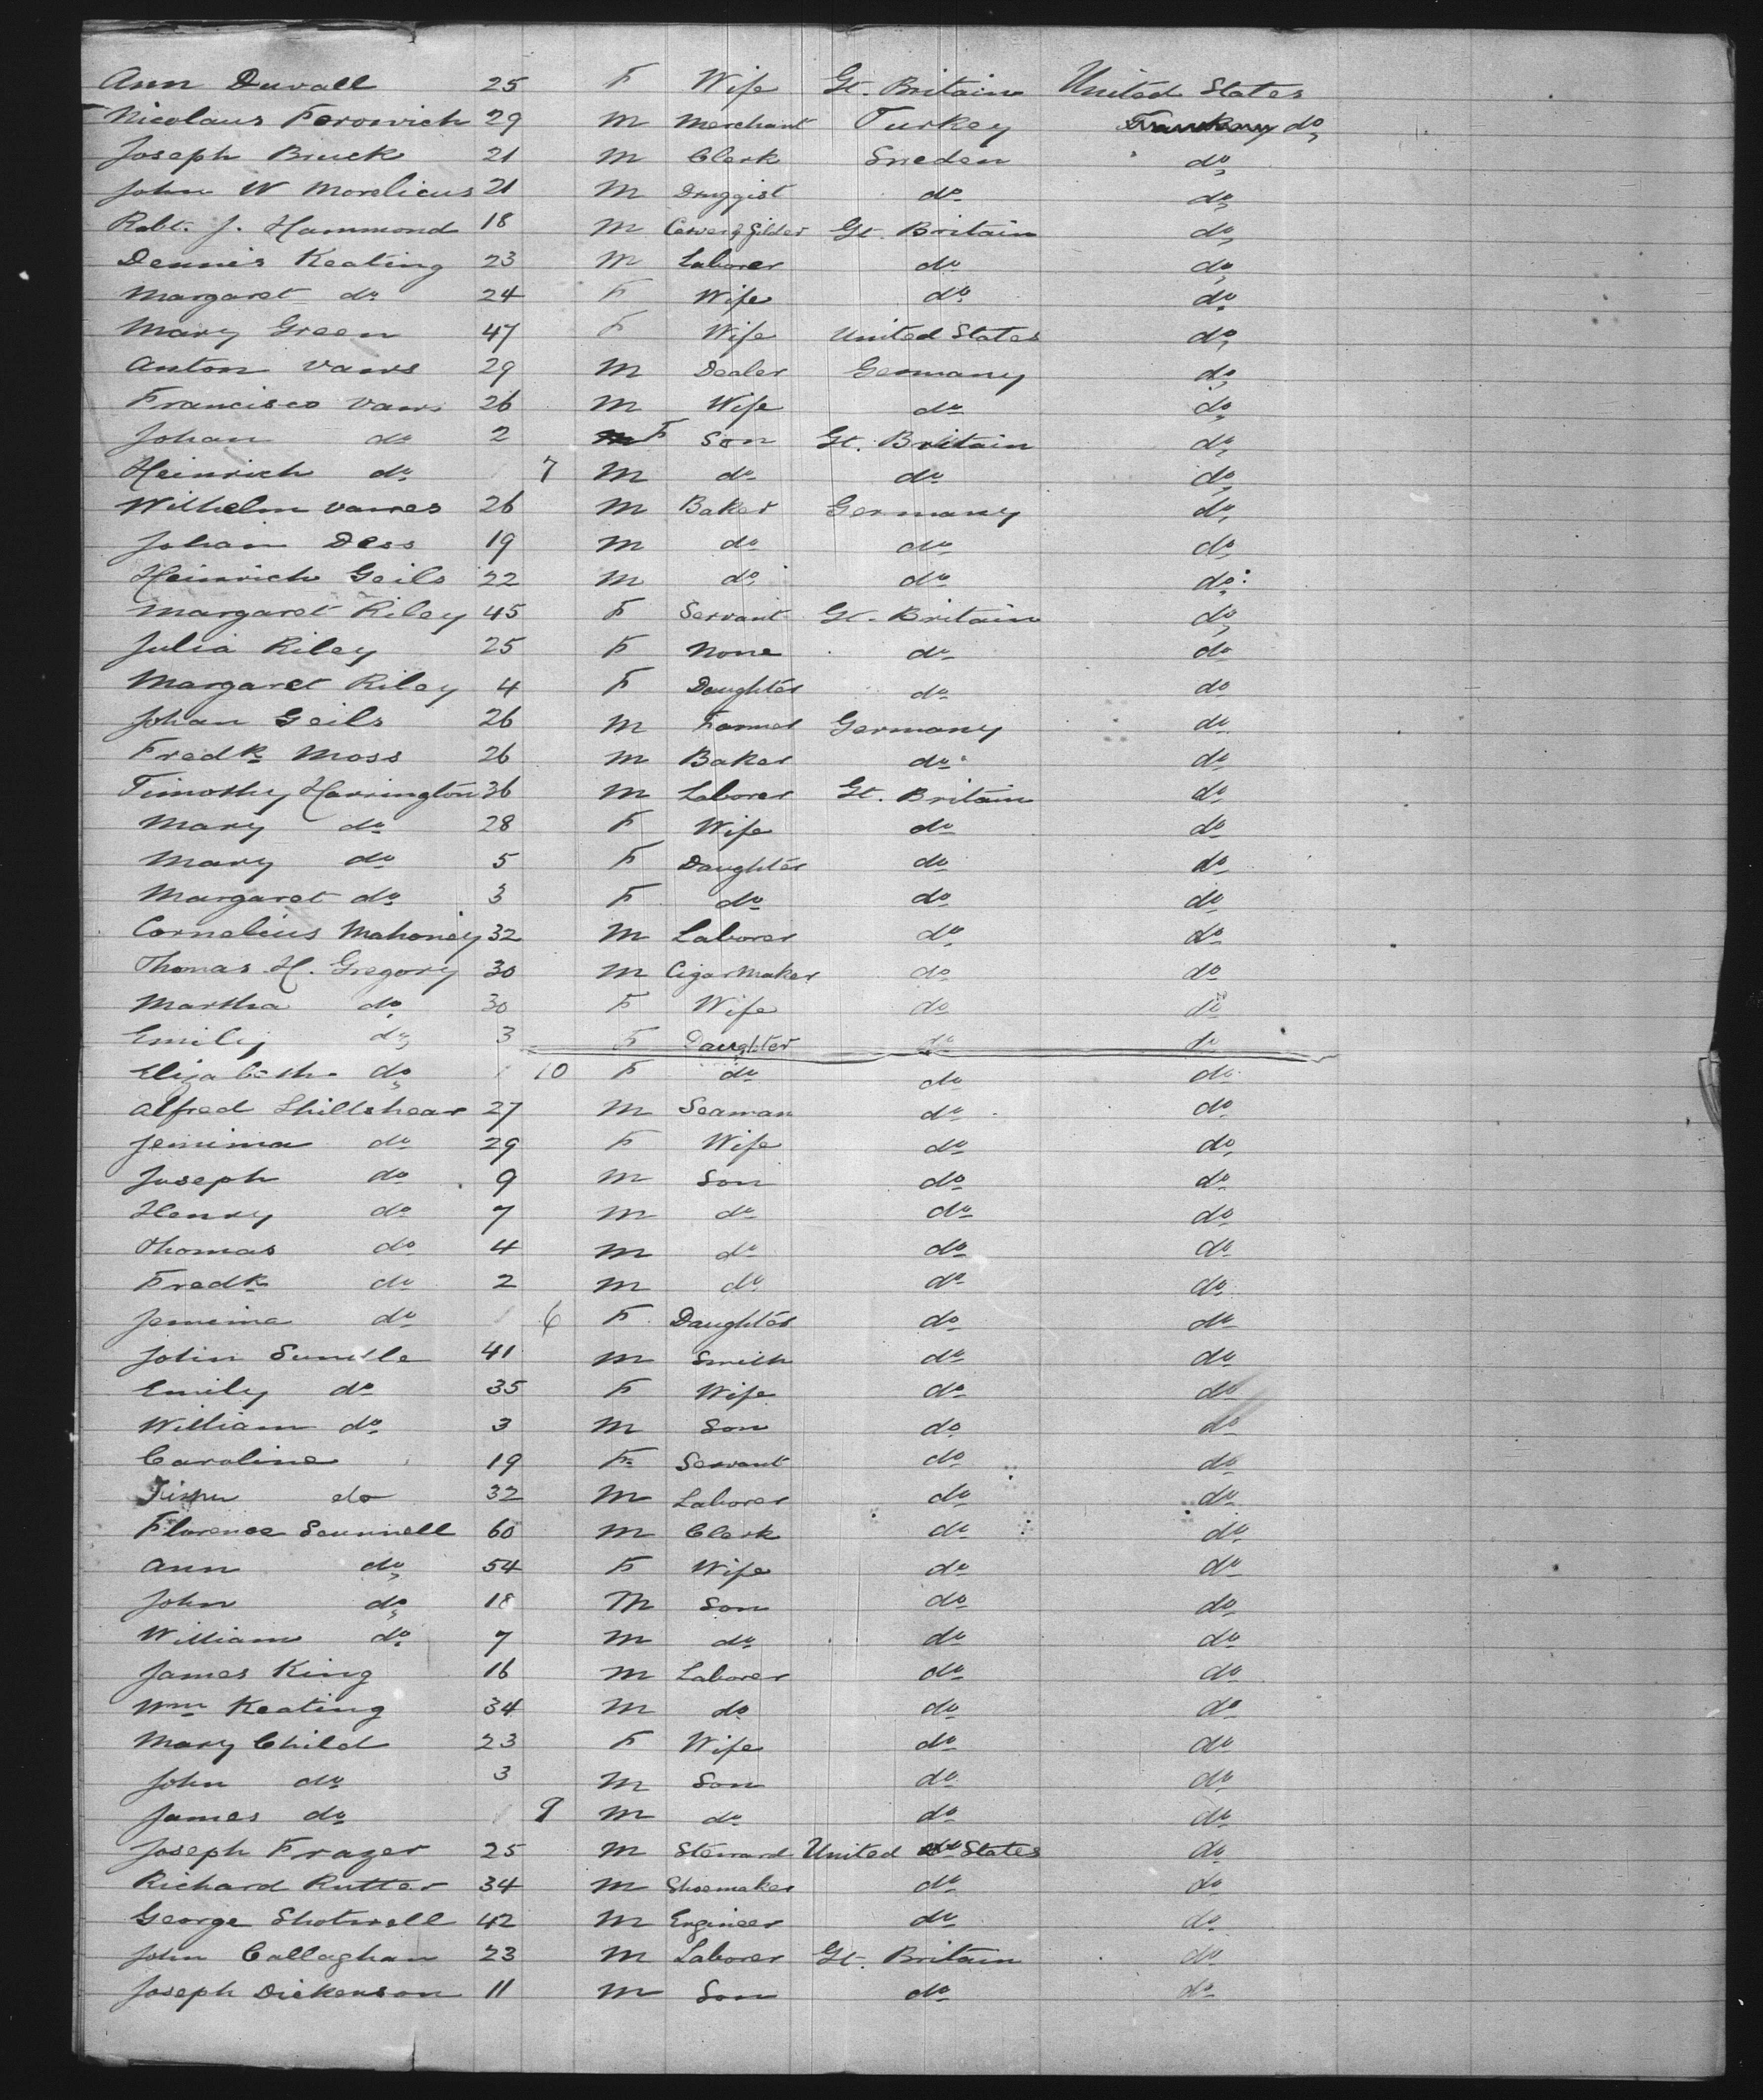 Ann Duvall 25 F Wife Gt. Britain United States
Nicolaus Ferowich 29 M Merchant Turkey do
Joseph Bruck 21 M Clerk Sweden do
John W Morelicus 21 M Druggist do do
Robt. J. Hammond 18 M Carver & Gilder Gt. Britain do
Dennis Keating 23 M Laborer do do
Margaret do 24 F Wife do do
Mary Green 47 F Wife United States do
Anton Vaws 29 M Dealer Germany do
Francisco Vaws 26 M Wife do do
Johan do 2 F Son Gt. Britain do
Heinrich do 7 M do do do
Wilhelm 26 M Baker Germany do
Johan Dess 19 M do do do
Heinrich Geils 22 M do do do
Margaret Riley 45 F Servant Gt. Britain do
Julia Riley 25 F None do do
Margaret Riley 4 F Daughter do do
Johan Geils 26 M Farmer Germany do
Fredk Moss 26 M Baker do do
Timothy Harrington 36 M Laborer Gt. Britain do
Mary do 28 F Wife do do
Mary do 5 F Daughter do do
Margaret do 3 F do do do
Cornelius Mahoney 32 M Laborer do do
Thomas H. Gregory 30 M Cigar Maker do do
Martha do 30 F Wife do do
Emily do 3 F Daughter do do
Elizabeth do 10 F do do do
Alfred Shillshear 27 M Seaman do do
Jemima do 29 F Wife do do
Joseph do 9 M Son do do
Henry do 7 M do do do
Thomas do 4 M do do do
Fredk do 2 M do do do
Jemima do 6 F Daughter do do
John 41 M Smith do do
Emily do 35 F Wife do do
William do 3 M Son do do
Caroline 19 F Servant do do
do 32 M Laborer do do
Florence Scunnell 60 M Clerk do do
Ann do 54 F Wife do do
John do 18 M Son do do
William do 7 M do do do
James King 16 M Laborer do do
Wm Keating 34 M do do do
Mary Child 23 F Wife do do
John do 3 M Son do do
James do 9 M do do do
Joseph Frazer 25 M Steward United States do
Richard Rutter 34 M Shoemaker do do
George Shotwell 42 M Engineer do do
John Callaghan 23 M Laborer Gt. Britain do
Joseph Dickenson 11 M Son do do